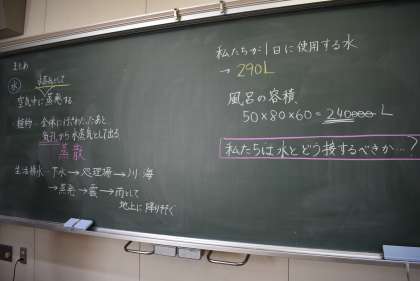 まとめ
水
水蒸気として
空気中に蒸発する
植物…全体に行きわたったあと
気孔から水蒸気として出る
蒸散
生活排水→下水→処理場→川 海
→蒸発→雲→雨として
地上に降りそそぐ
私たちが1日に使用する水
→290L
風呂の容積
50×80×60=240000 L
私たちは水とどう接するべきか…?